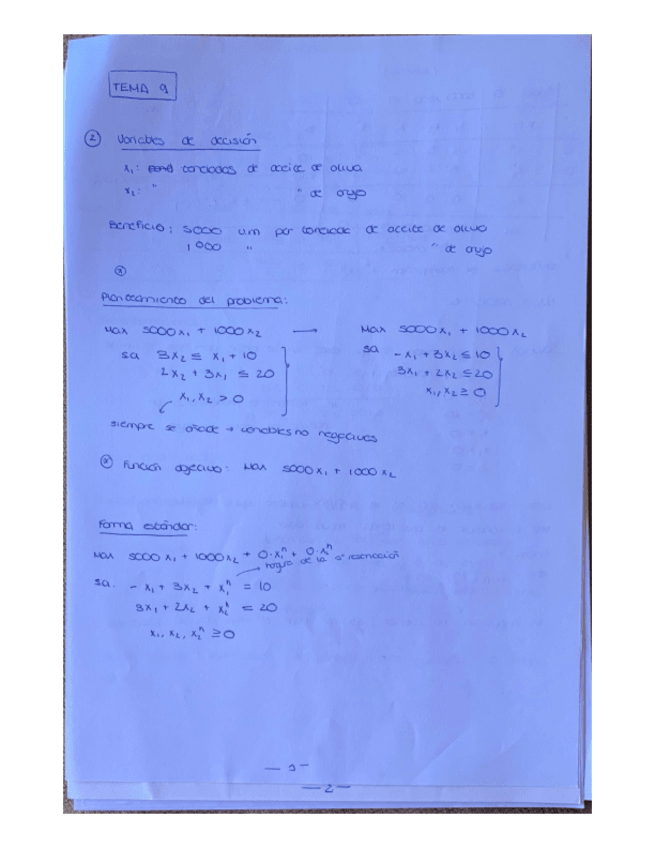 TEMA 9
② Variables de decisión
x₁: toneladas de aceite de oliva
x₂: " " de orujo
Beneficio: 5000 u.m por tonelada de aceite de oliva
1000 " " de orujo
Planteamiento del problema:
Max 5000x₁ + 1000x₂ → Max 5000x₁ + 1000x₂
sa 3x₂ ≤ x₁ + 10 sa -x₁ + 3x₂ ≤ 10
2x₂ + 3x₁ ≤ 20 3x₁ + 2x₂ ≤ 20
x₁, x₂ > 0 x₁, x₂ ≥ 0
siempre se añade → variables no negativas
Función objetivo: Max 5000x₁ + 1000x₂
Forma estándar:
Max 5000x₁ + 1000x₂ + 0·x₁ʰ + 0·x₂ʰ
holgura de la 1ª restricción
sa. -x₁ + 3x₂ + x₁ʰ = 10
3x₁ + 2x₂ + x₂ʰ = 20
x₁, x₂, x₂ʰ ≥ 0
— 1 —
— 2 —